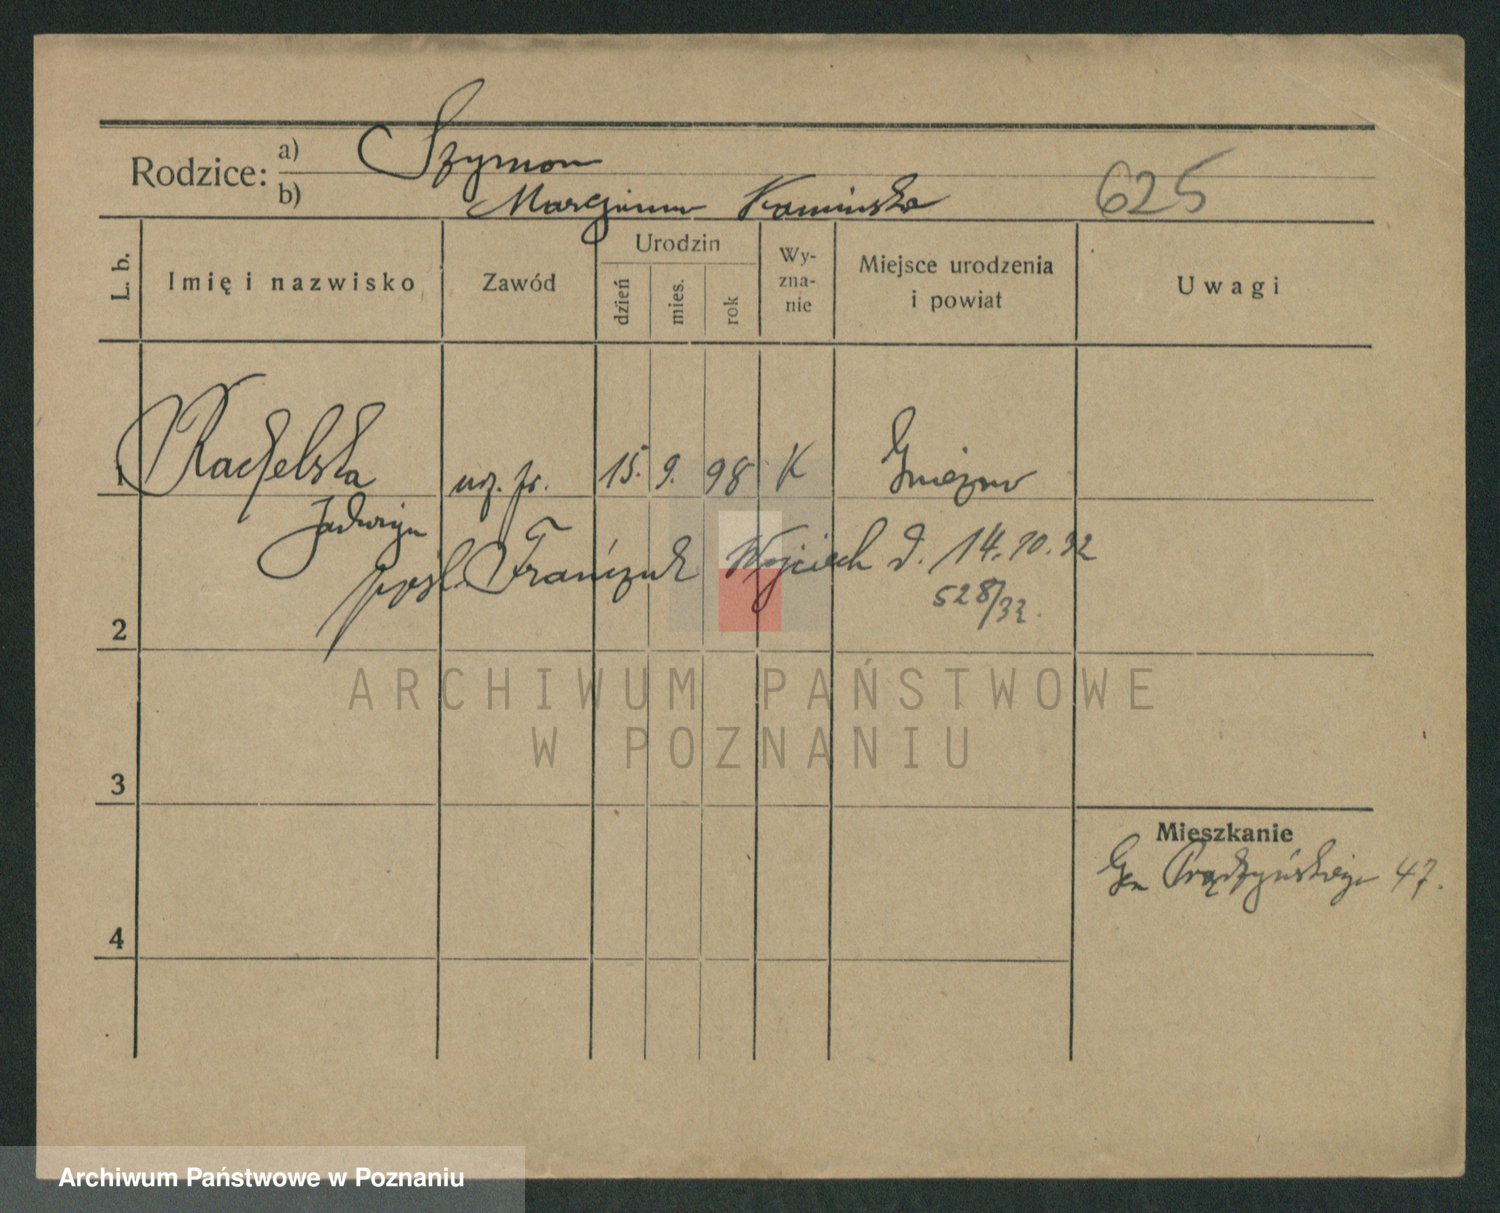 Rodzice: a) Szymon
b) Marcjanna Kamińska 625
L. b. Imię i nazwisko Zawód Urodzin dzień mies. rok Wy-zna-nie Miejsce urodzenia i powiat Uwagi
1 Kachelska urz. pr. 15. 9. 98 K Gniezno
Jadwiga
pośl. Frańczak Wojciech d. 14.10.32
528/32.
2
ARCHIWUM PAŃSTWOWE
W POZNANIU
3
Mieszkanie
Gen Prądzyńskiego 47.
4
Archiwum Państwowe w Poznaniu